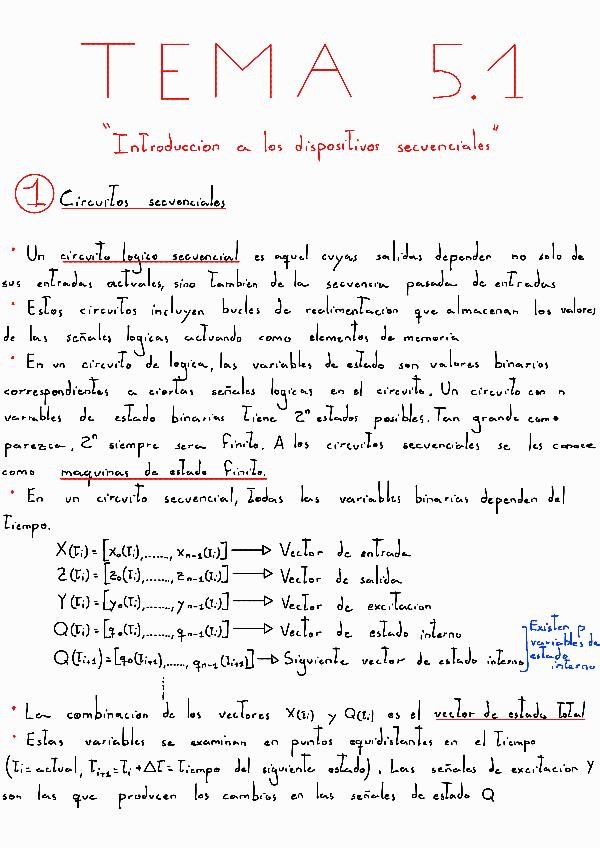 TEMA 5.1
"Introduccion a los dispositivos secuenciales"
① Circuitos secuenciales
· Un circuito logico secuencial es aquel cuyas salidas dependen no solo de
sus entradas actuales, sino tambien de la secuencia pasada de entradas
· Estos circuitos incluyen bucles de realimentacion que almacenan los valores
de las señales logicas actuando como elementos de memoria
· En un circuito de logica, las variables de estado son valores binarios
correspondientes a ciertas señales logicas en el circuito. Un circuito con n
variables de estado binarias tiene 2ⁿ estados posibles. Tan grande como
parezca, 2ⁿ siempre sera finito. A los circuitos secuenciales se les conoce
como maquinas de estado finito.
· En un circuito secuencial, todas las variables binarias dependen del
tiempo.
X(ti) = [x₀(ti),......, xn-1(ti)] → Vector de entrada
Z(ti) = [z₀(ti),......, zn-1(ti)] → Vector de salida
Y(ti) = [y₀(ti),......, yn-1(ti)] → Vector de excitacion
Q(ti) = [q₀(ti),......, qn-1(ti)] → Vector de estado interno
Q(ti+1) = [q₀(ti+1),......, qn-1(ti+1)] → Siguiente vector de estado interno
Existen p
variables de
estado
interno
· La combinacion de los vectores X(ti) y Q(ti) es el vector de estado total
· Estas variables se examinan en puntos equidistantes en el tiempo
(ti = actual, ti+1 = ti + Δt = tiempo del siguiente estado). Las señales de excitacion Y
son las que producen los cambios en las señales de estado Q